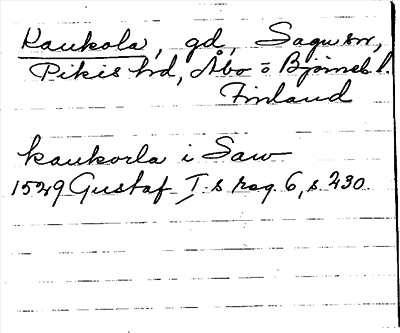 Kaukola, gd, Sagu sn,
Pikis hd, Åbo o Björneb l.
Finland
kaukorla i Saw
1529 Gustaf I:s reg. 6, s. 230.